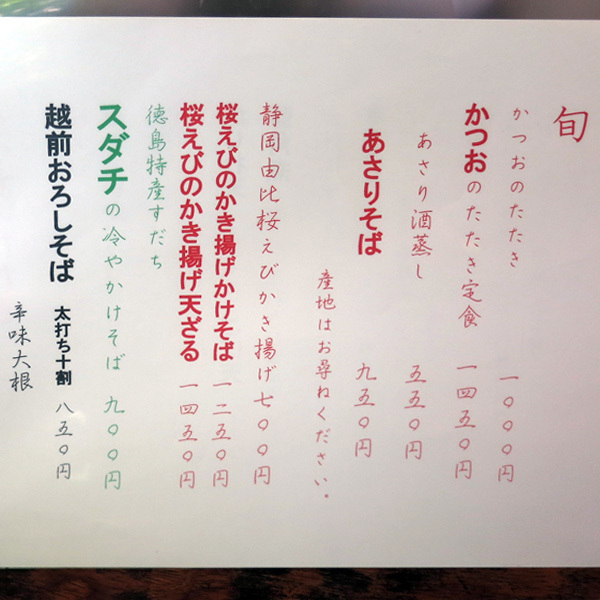 旬
かつおのたたき 一〇〇〇円
かつおのたたき定食 一四五〇円
あさり酒蒸し 五五〇円
あさりそば 九五〇円
産地はお尋ねください。
静岡由比桜えびかき揚げ 七〇〇円
桜えびのかき揚げかけそば 一二五〇円
桜えびのかき揚げ天ざる 一四五〇円
徳島特産すだち
スダチの冷やかけそば 九〇〇円
越前おろしそば 太打ち十割 八五〇円
辛味大根